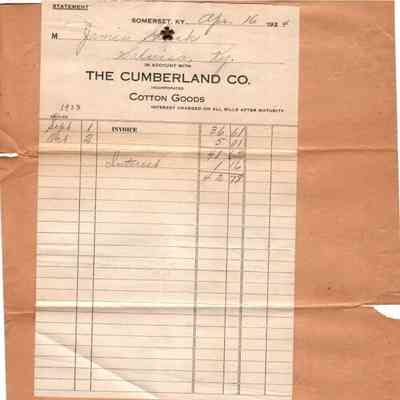 STATEMENT
SOMERSET, KY. Apr. 16 1934
M
Ky.
IN ACCOUNT WITH
THE CUMBERLAND CO.
INCORPORATED
COTTON GOODS
INTEREST CHARGED ON ALL BILLS AFTER MATURITY
1933
Sept 1 INVOICE 36 61
Oct 2 5 01
41 62
Interest 1 16
42 78